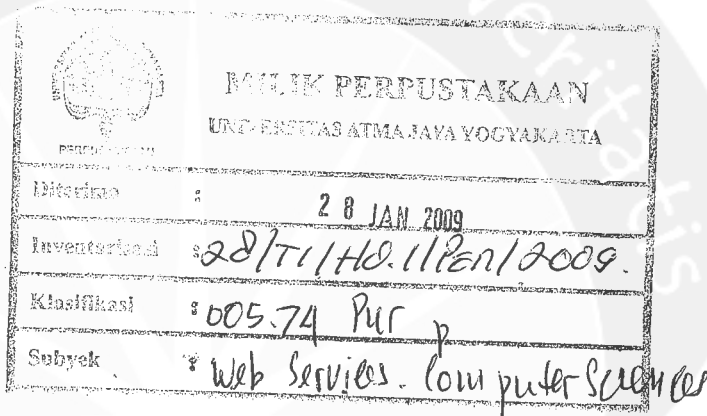 MILIK PERPUSTAKAAN
UNIVERSITAS ATMA JAYA YOGYAKARTA
PERPUSTAKAAN
Diterima : 28 JAN 2009
Inventarisasi : 28/TI/Hd.1/Pen/2009.
Klasifikasi : 005.74 Pur p
Subyek : Web Services. Computer Sciences
veritatis